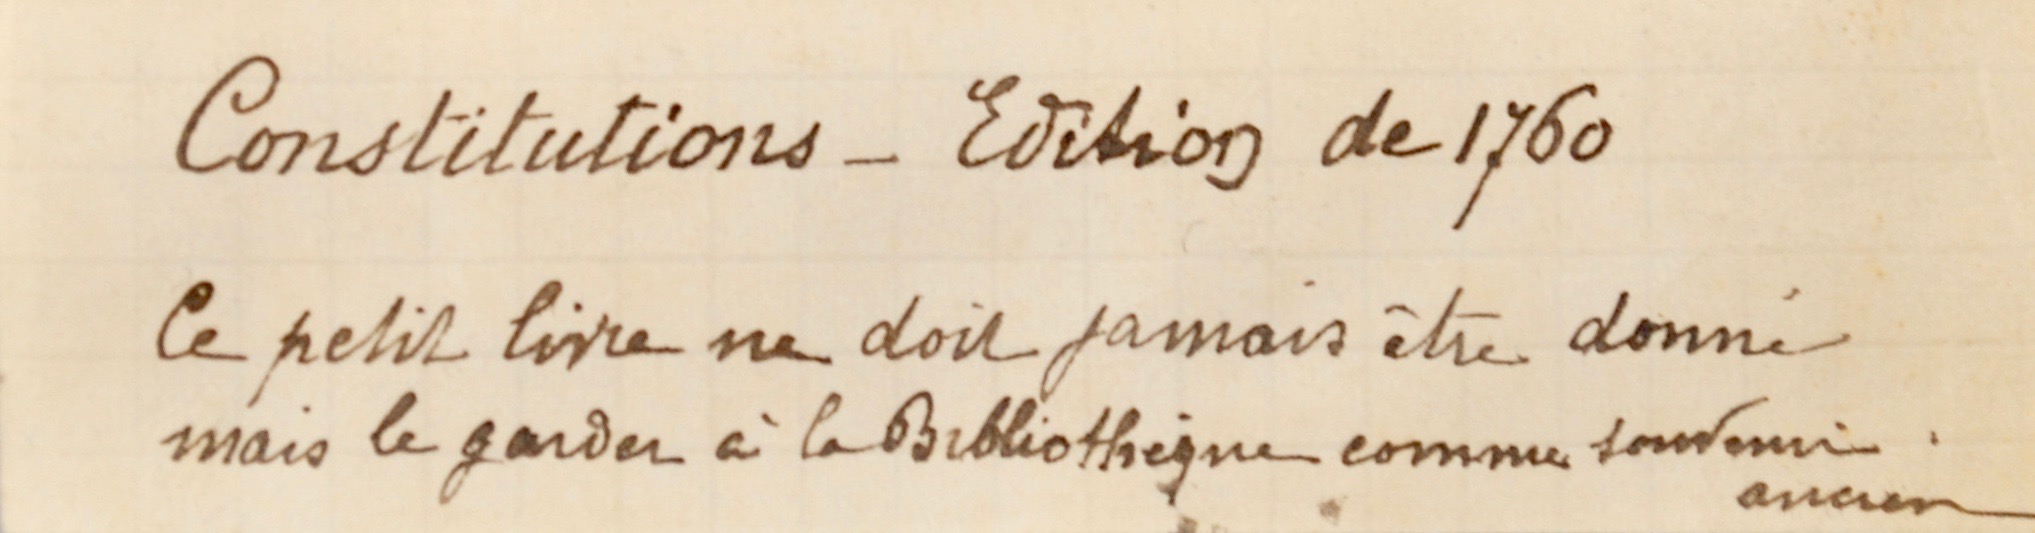 Constitutions - Edition de 1760
Ce petit livre ne doit jamais être donné
mais le garder à la Bibliothèque comme souvenir.
ancien